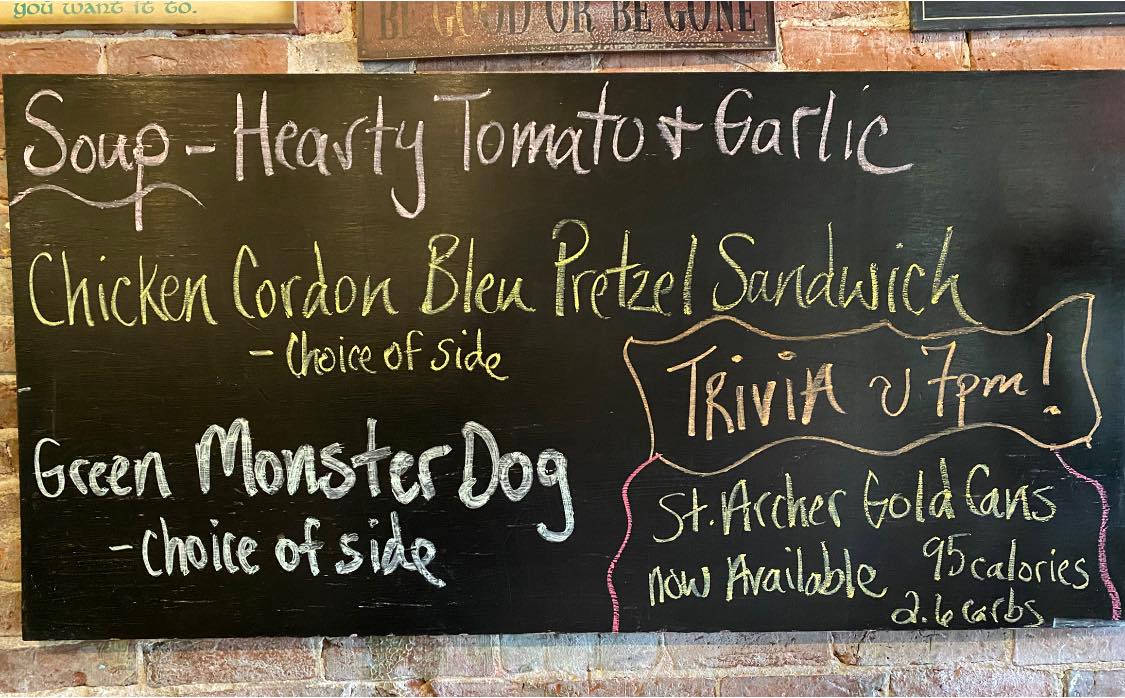 you want it to.
BE GOOD OR BE GONE
Soup - Hearty Tomato + Garlic
Chicken Cordon Bleu Pretzel Sandwich
- Choice of side
Trivia ~ 7pm!
Green Monster Dog
- choice of side
St. Archer Gold Cans
now Available 95 calories
2.6 carbs